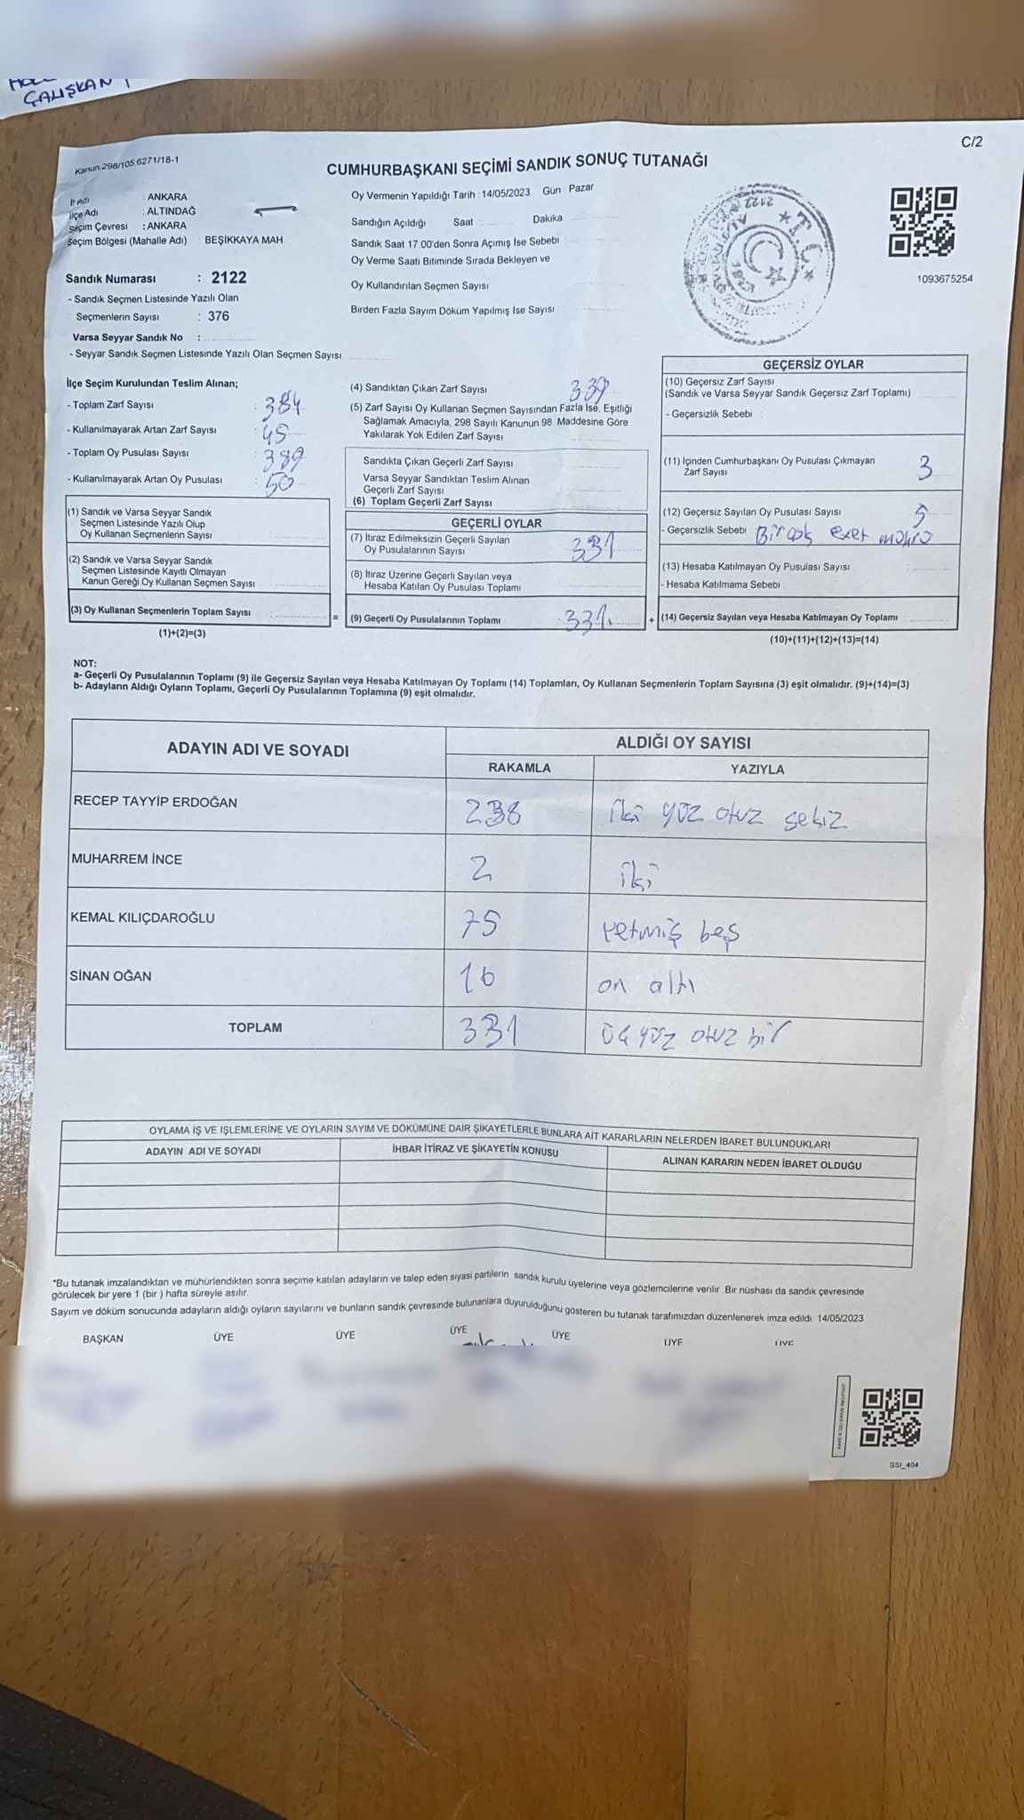 ÇALIŞKAN
Kanun 298/105 6271/18-1
C/2
CUMHURBAŞKANI SEÇİMİ SANDIK SONUÇ TUTANAĞI
İl Adı : ANKARA
İlçe Adı : ALTINDAĞ
Seçim Çevresi : ANKARA
Seçim Bölgesi (Mahalle Adı) BEŞİKKAYA MAH
Sandık Numarası : 2122
- Sandık Seçmen Listesinde Yazılı Olan
Seçmenlerin Sayısı : 376
Varsa Seyyar Sandık No :
- Seyyar Sandık Seçmen Listesinde Yazılı Olan Seçmen Sayısı
Oy Vermenin Yapıldığı Tarih : 14/05/2023 Gün Pazar
Sandığın Açıldığı Saat Dakika
Sandık Saat 17.00'den Sonra Açımış İse Sebebi
Oy Verme Saati Bitiminde Sırada Bekleyen ve
Oy Kullandırılan Seçmen Sayısı
Birden Fazla Sayım Döküm Yapılmış İse Sayısı
T.C.
2122
1093675254
İlçe Seçim Kurulundan Teslim Alınan;
- Toplam Zarf Sayısı : 384
- Kullanılmayarak Artan Zarf Sayısı : 45
- Toplam Oy Pusulası Sayısı : 389
- Kullanılmayarak Artan Oy Pusulası : 50
(1) Sandık ve Varsa Seyyar Sandık
Seçmen Listesinde Yazılı Olup
Oy Kullanan Seçmenlerin Sayısı
(2) Sandık ve Varsa Seyyar Sandık
Seçmen Listesinde Kayıtlı Olmayan
Kanun Gereği Oy Kullanan Seçmen Sayısı
(3) Oy Kullanan Seçmenlerin Toplam Sayısı
(1)+(2)=(3)
(4) Sandıktan Çıkan Zarf Sayısı 339
(5) Zarf Sayısı Oy Kullanan Seçmen Sayısından Fazla İse, Eşitliği
Sağlamak Amacıyla, 298 Sayılı Kanunun 98. Maddesine Göre
Yakılarak Yok Edilen Zarf Sayısı
Sandıkta Çıkan Geçerli Zarf Sayısı
Varsa Seyyar Sandıktan Teslim Alınan
Geçerli Zarf Sayısı
(6) Toplam Geçerli Zarf Sayısı
GEÇERLİ OYLAR
(7) İtiraz Edilmeksizin Geçerli Sayılan
Oy Pusulalarının Sayısı 331
(8) İtiraz Üzerine Geçerli Sayılan veya
Hesaba Katılan Oy Pusulası Toplamı
= (9) Geçerli Oy Pusulalarının Toplamı 331
GEÇERSİZ OYLAR
(10) Geçersiz Zarf Sayısı
(Sandık ve Varsa Seyyar Sandık Geçersiz Zarf Toplamı)
- Geçersizlik Sebebi
(11) İçinden Cumhurbaşkanı Oy Pusulası Çıkmayan
Zarf Sayısı 3
(12) Geçersiz Sayılan Oy Pusulası Sayısı 5
- Geçersizlik Sebebi
(13) Hesaba Katılmayan Oy Pusulası Sayısı
- Hesaba Katılmama Sebebi
+ (14) Geçersiz Sayılan veya Hesaba Katılmayan Oy Toplamı
(10)+(11)+(12)+(13)=(14)
NOT:
a- Geçerli Oy Pusulalarının Toplamı (9) ile Geçersiz Sayılan veya Hesaba Katılmayan Oy Toplamı (14) Toplamları, Oy Kullanan Seçmenlerin Toplam Sayısına (3) eşit olmalıdır. (9)+(14)=(3)
b- Adayların Aldığı Oyların Toplamı, Geçerli Oy Pusulalarının Toplamına (9) eşit olmalıdır.
ADAYIN ADI VE SOYADI ALDIĞI OY SAYISI
RAKAMLA YAZIYLA
RECEP TAYYİP ERDOĞAN 238 iki yüz otuz sekiz
MUHARREM İNCE 2 iki
KEMAL KILIÇDAROĞLU 75 yetmiş beş
SİNAN OĞAN 16 on altı
TOPLAM 331 üç yüz otuz bir
OYLAMA İŞ VE İŞLEMLERİNE VE OYLARIN SAYIM VE DÖKÜMÜNE DAİR ŞİKAYETLERLE BUNLARA AİT KARARLARIN NELERDEN İBARET BULUNDUKLARI
ADAYIN ADI VE SOYADI İHBAR İTİRAZ VE ŞİKAYETİN KONUSU ALINAN KARARIN NEDEN İBARET OLDUĞU
*Bu tutanak imzalandıktan ve mühürlendikten sonra seçime katılan adayların ve talep eden siyasi partilerin sandık kurulu üyelerine veya gözlemcilerine verilir. Bir nüshası da sandık çevresinde
görülecek bir yere 1 (bir ) hafta süreyle asılır.
Sayım ve döküm sonucunda adayların aldığı oyların sayılarını ve bunların sandık çevresinde bulunanlara duyurulduğunu gösteren bu tutanak tarafımızdan düzenlenerek imza edildi. 14/05/2023
BAŞKAN ÜYE ÜYE ÜYE ÜYE ÜYE ÜYE
SSI_404